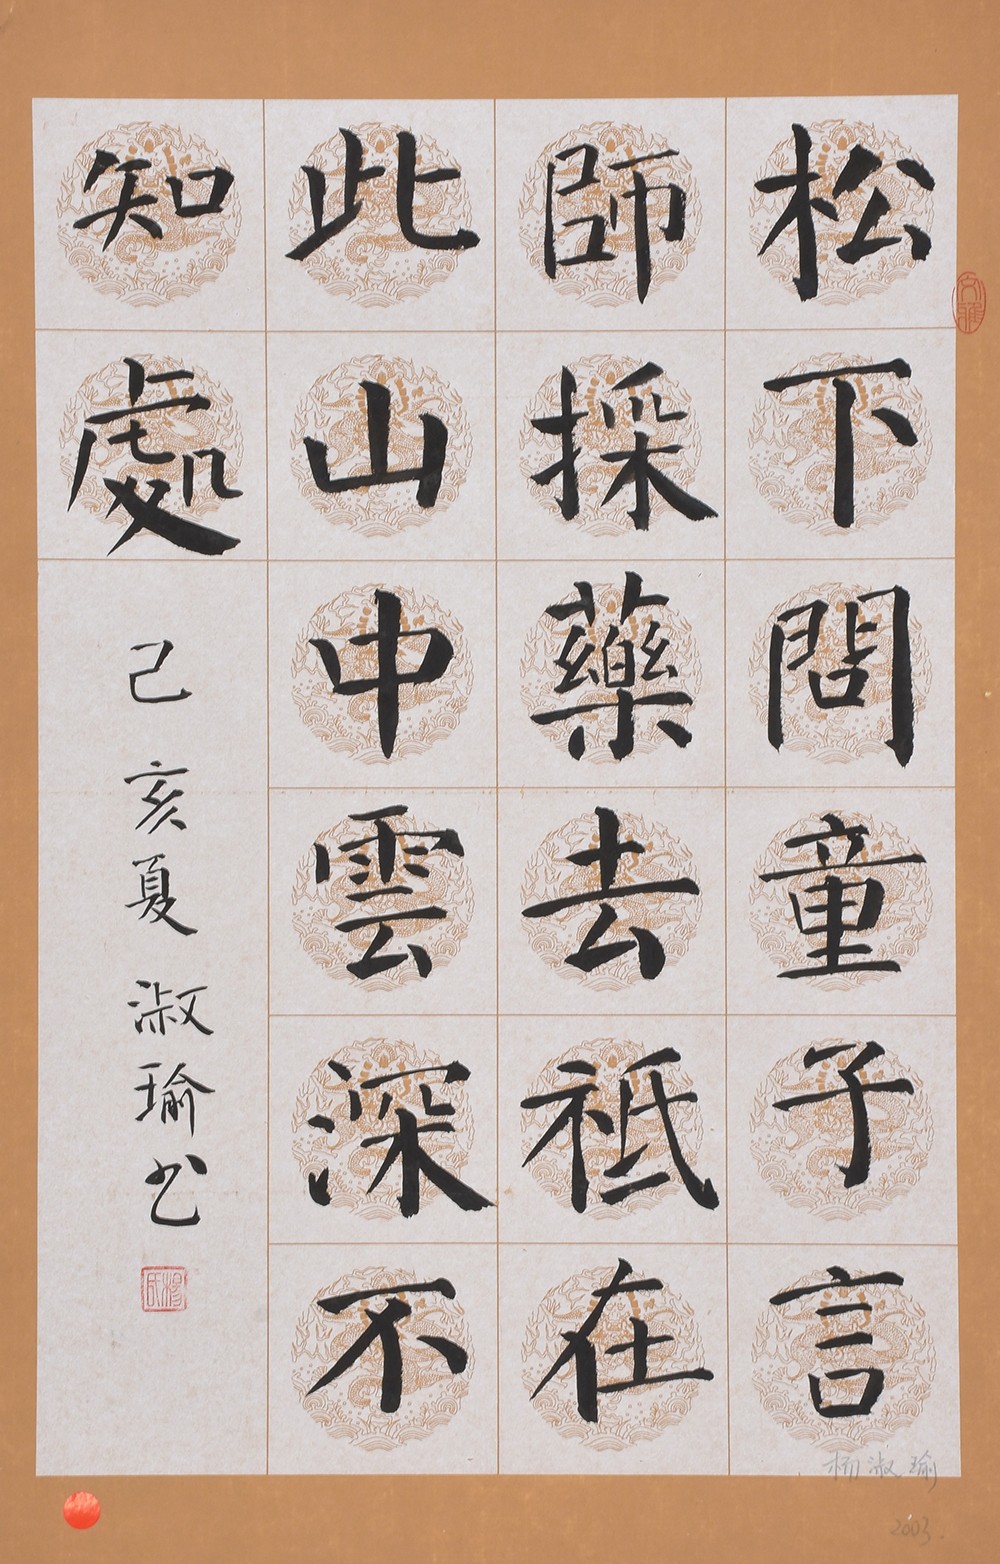 松下問童子言
師採藥去祗在
此山中雲深不
知處
己亥夏 淑瑜书
楊氏
杨淑瑜
2003.